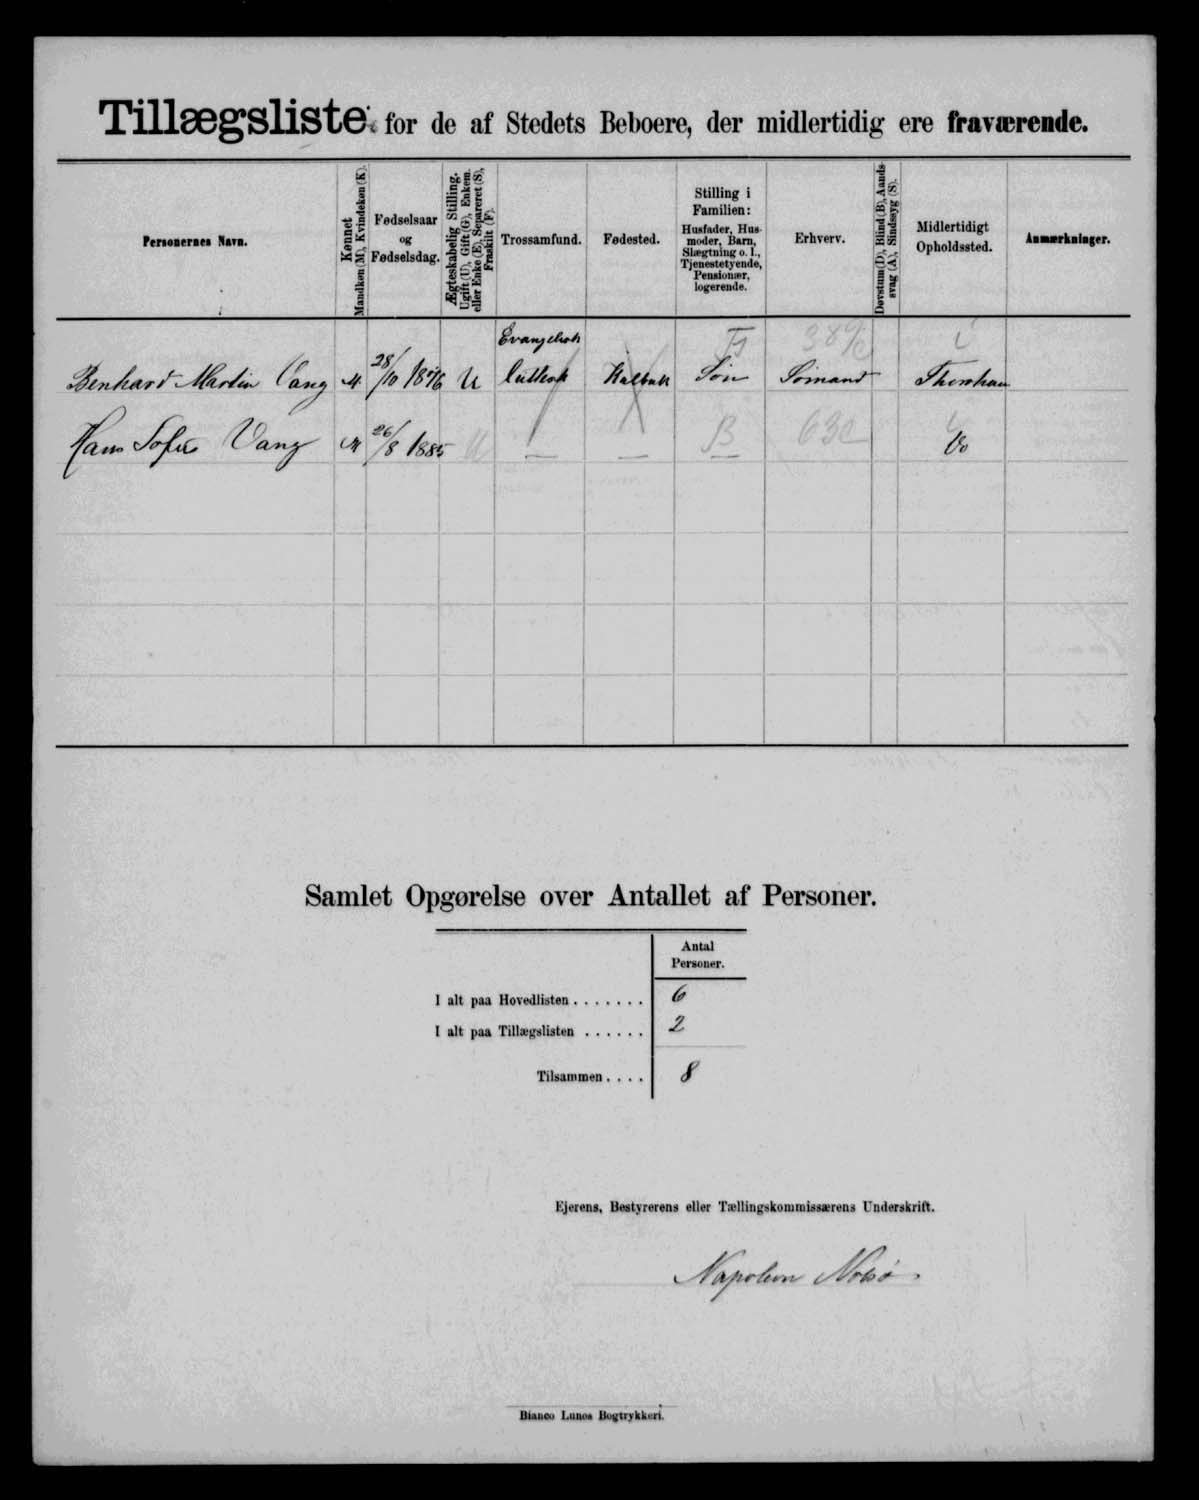 Tillægsliste for de af Stedets Beboere, der midlertidig ere fraværende.
Personernes Navn.
Kønnet
Mandkøn (M), Kvindekøn (K).
Fødselsaar
og
Fødselsdag.
Ægteskabelig Stilling.
Ugift (U), Gift (G), Enkem.
eller Enke (E), Separeret (S),
Fraskilt (F).
Trossamfund.
Fødested.
Stilling i
Familien:
Husfader, Hus-
moder, Barn,
Slægtning o. l.,
Tjenestetyende,
Pensionær,
logerende.
Erhverv.
Døvstum (D), Blind (B), Aands-
svag (A), Sindssyg (S).
Midlertidigt
Opholdssted.
Anmærkninger.
Benhard Martin Vang M. 28/10 1876 U Evangelisk Luthersk Kalbak Søn Sømand Thorshavn
Hans Sofus Vang M 26/8 1885 U — — B — Do
Samlet Opgørelse over Antallet af Personer.
Antal
Personer.
I alt paa Hovedlisten . . . . . . . 6
I alt paa Tillægslisten . . . . . . 2
Tilsammen . . . . 8
Ejerens, Bestyrerens eller Tællingskommissærens Underskrift.
Napoleon Nolsø
Bianco Lunos Bogtrykkeri.